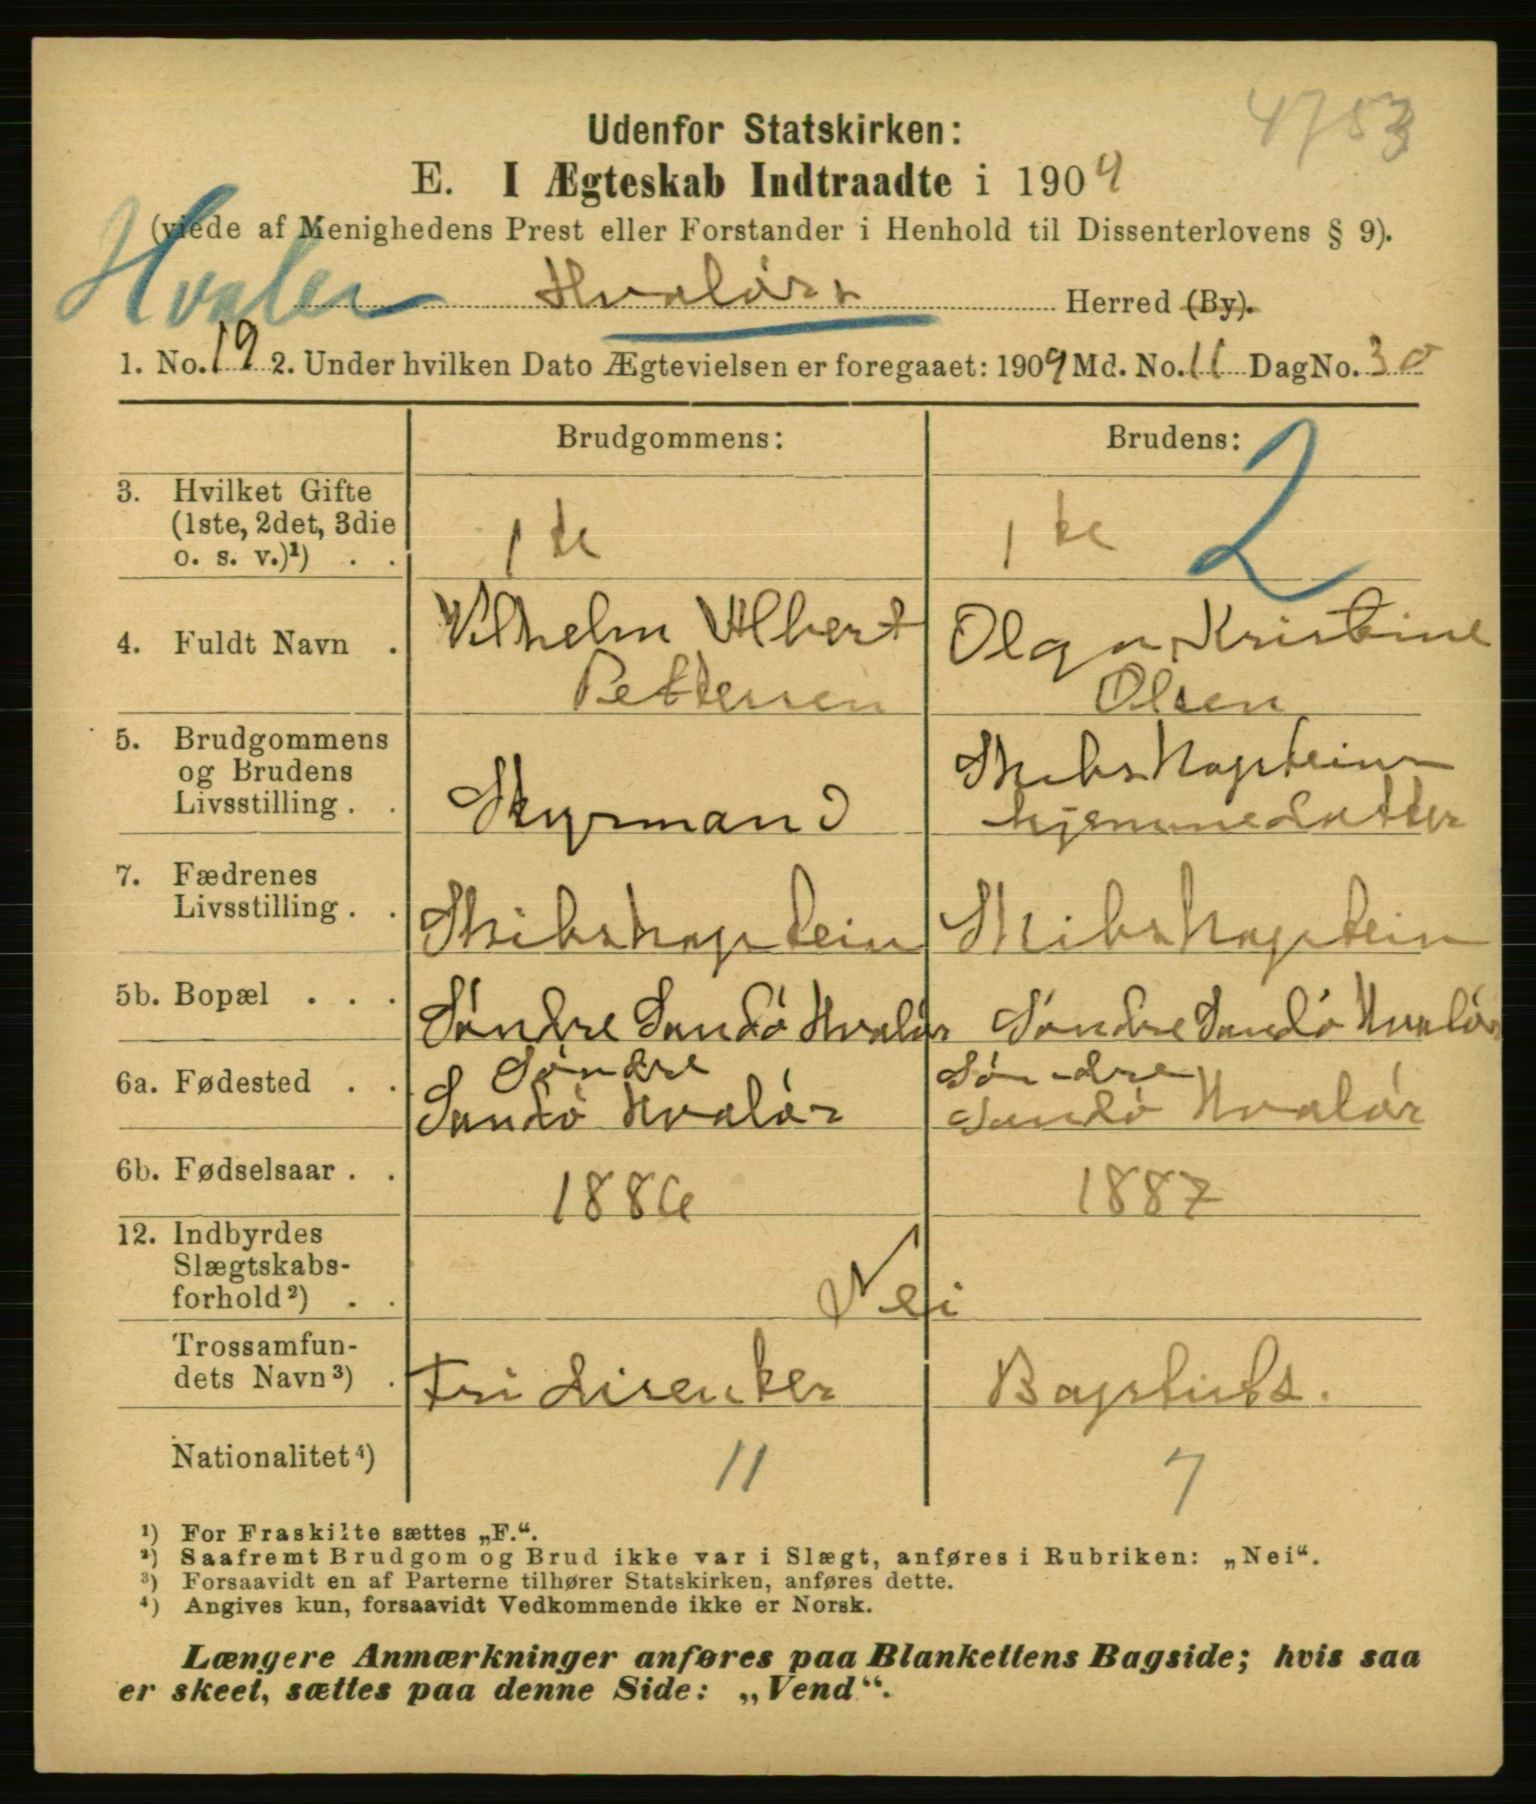 4753
Udenfor Statskirken:
E. I Ægteskab Indtraadte i 1909
(viede af Menighedens Prest eller Forstander i Henhold til Dissenterlovens § 9).
Hvaler Hvalörs Herred (By).
1. No. 19 2. Under hvilken Dato Ægtevielsen er foregaaet: 1909 Md. No. 11 Dag No. 30
Brudgommens: Brudens:
2
3. Hvilket Gifte
(1ste, 2det, 3die
o. s. v.)¹) . . 1te 1te
4. Fuldt Navn . Vilhelm Albert Olga Kristine
Pettersen Olsen
5. Brudgommens
og Brudens
Livsstilling . . Styrmand Skibskaptein
hjemmedatter
7. Fædrenes
Livsstilling . . Skibskaptein Skibskaptein
5b. Bopæl . . . Söndre Sandö Hvalör Söndre Sandö Hvalör
6a. Fødested . . Söndre Söndre
Sandö Hvalör Sandö Hvalör
6b. Fødselsaar . . 1886 1887
12. Indbyrdes
Slægtskabs-
forhold²) . . Nei
Trossamfun-
dets Navn³) . Fridisenker Baptists.
Nationalitet⁴) 11 7
¹) For Fraskilte sættes „F.“.
²) Saafremt Brudgom og Brud ikke var i Slægt, anføres i Rubriken: „Nei“.
³) Forsaavidt en af Parterne tilhører Statskirken, anføres dette.
⁴) Angives kun, forsaavidt Vedkommende ikke er Norsk.
Længere Anmærkninger anføres paa Blankettens Bagside; hvis saa
er skeet, sættes paa denne Side: „Vend“.